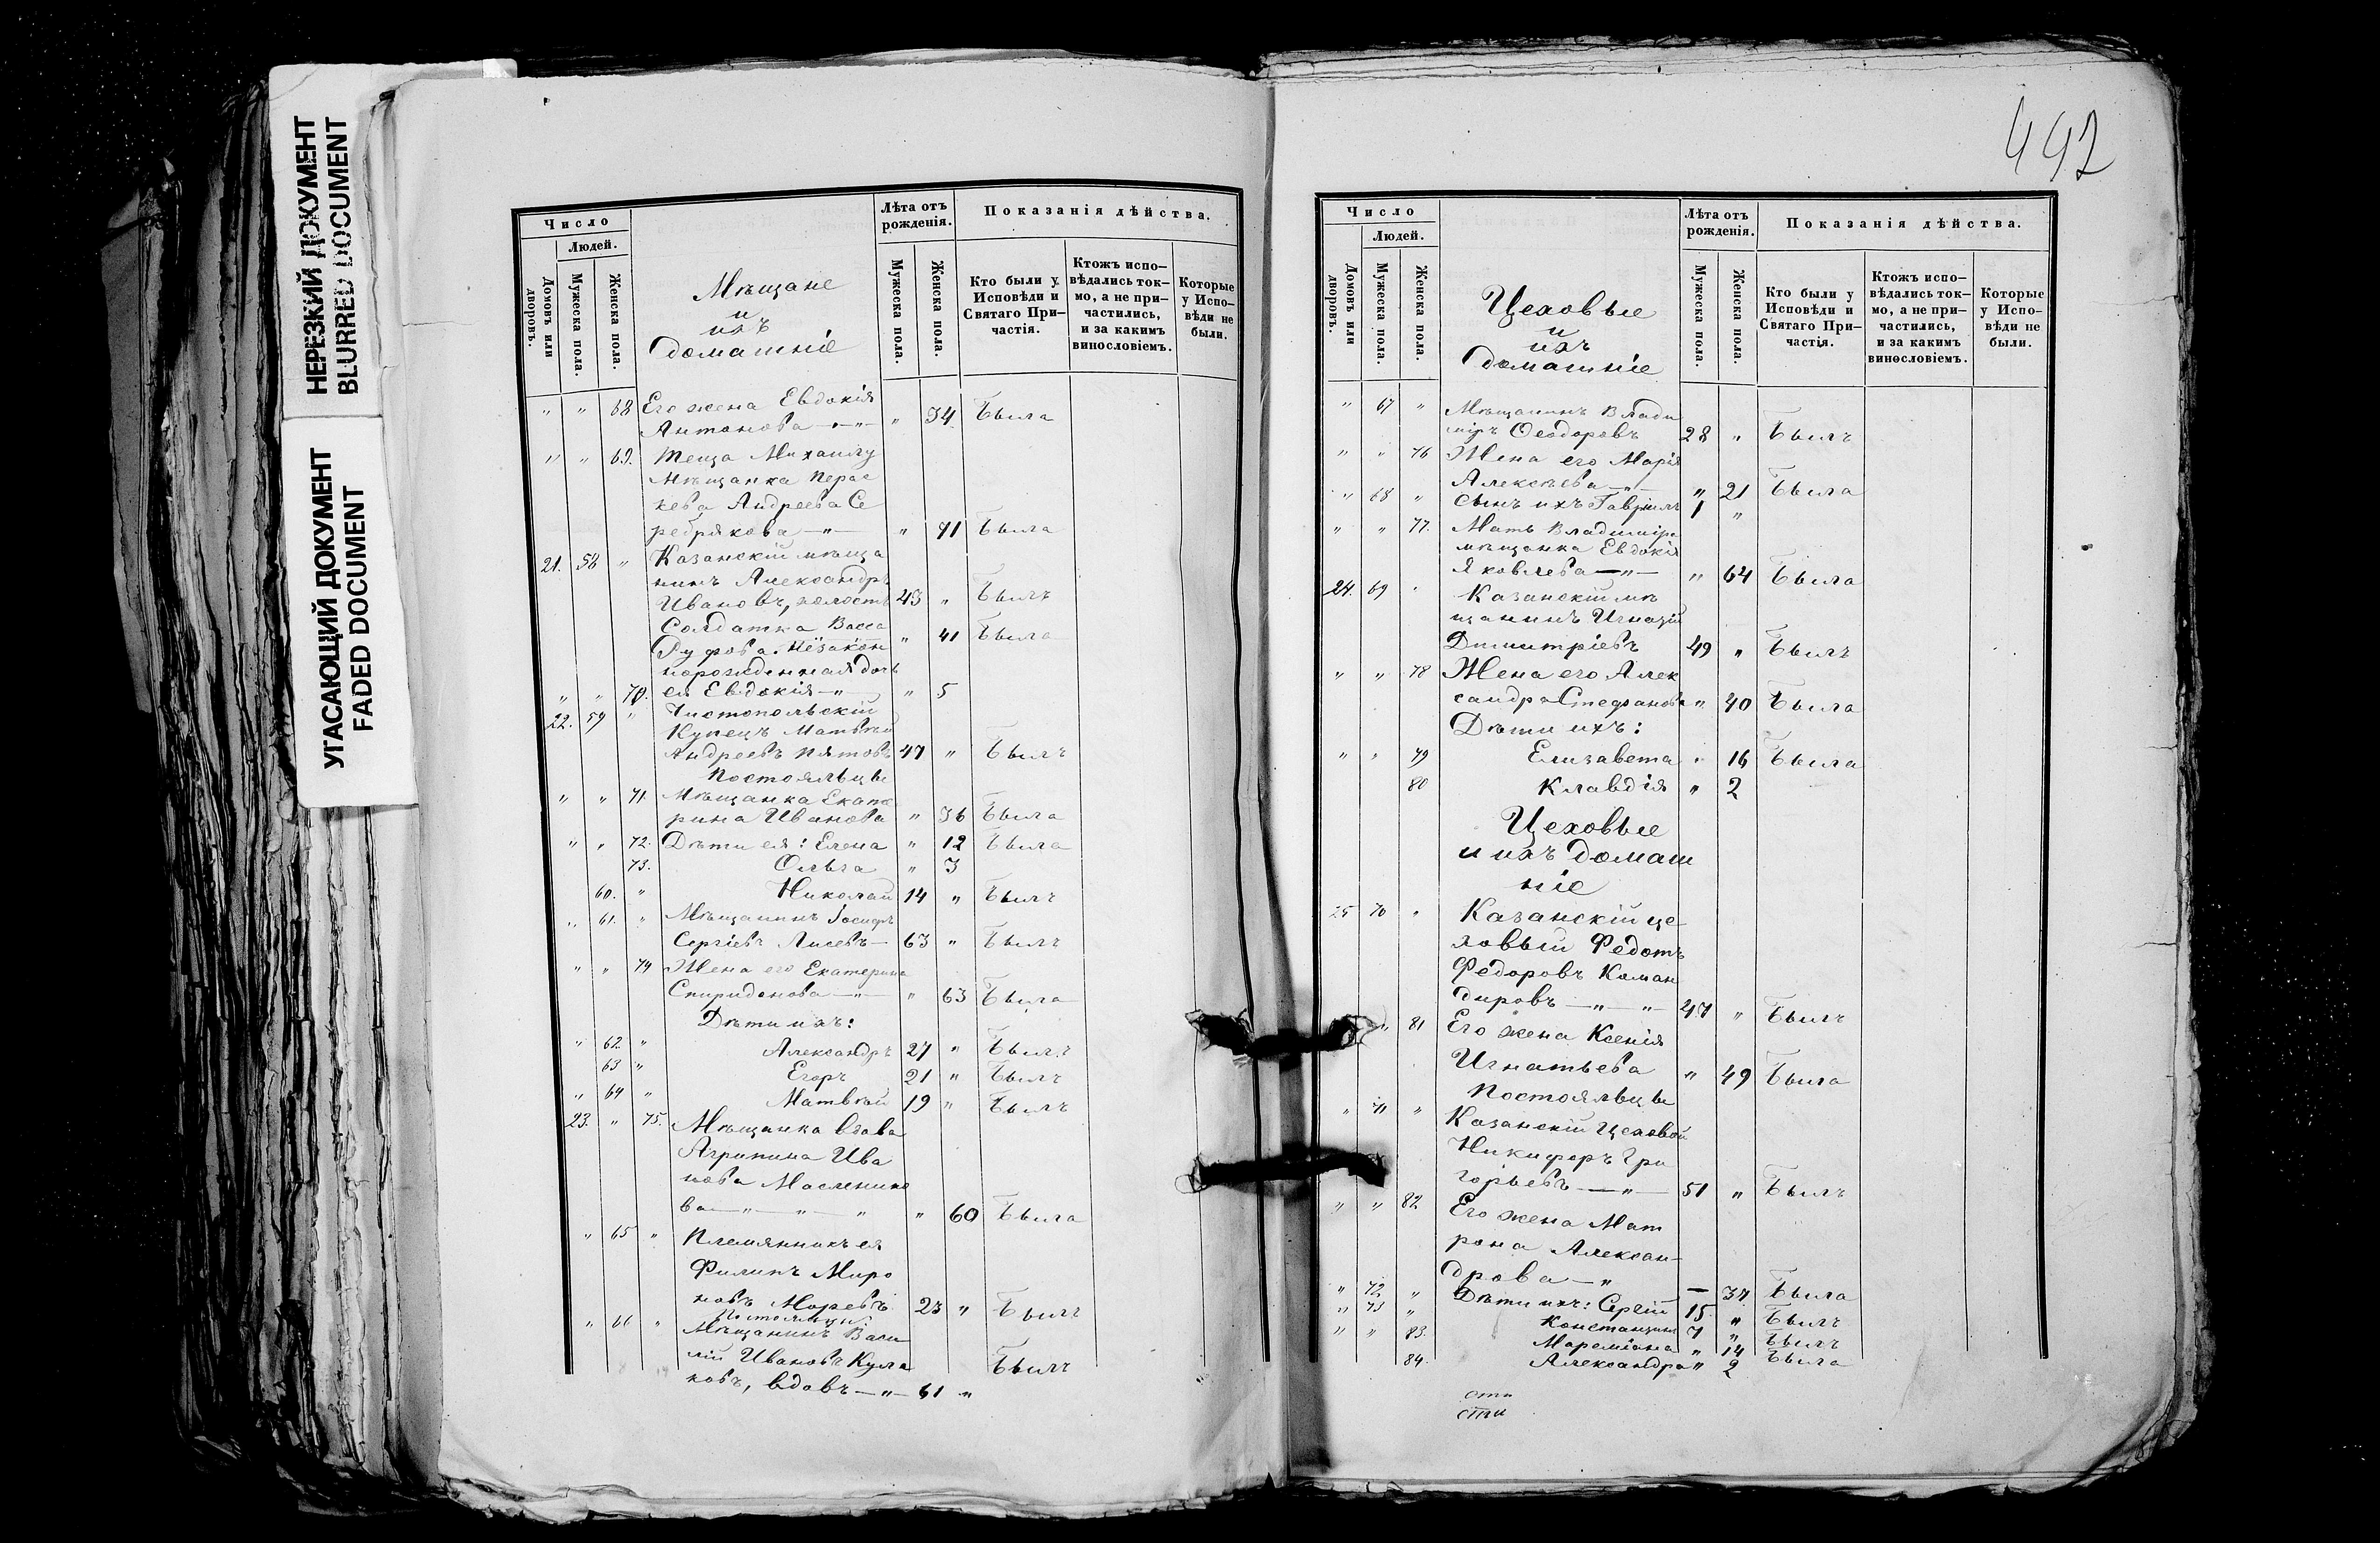 НЕРЕЗКИЙ ДОКУМЕНТ
BLURRED DOCUMENT
УГАСАЮЩИЙ ДОКУМЕНТ
FADED DOCUMENT
Число
Людей.
Домовъ или дворовъ.
Мужеска пола.
Женска пола.
Мѣщане
и
ихъ
домашніе
Лѣта отъ рожденія.
Мужеска пола.
Женска пола.
Показанія дѣйства.
Кто были у Исповѣди и Святаго При-частія.
Ктожъ испо-вѣдались ток-мо, а не при-частились, и за какимъ винословіемъ.
Которые у Испо-вѣди не были.
" " 68 Его жена Евдокія
Антонова " 34 Была
" " 69. Теща Михаилу
Мѣщанка Парас
кева Андреева Се
ребрякова — " — " 71 Была
21. 58 " Казанскій мѣща
нинъ Александръ
Ивановъ, холостъ 43 " Былъ
Солдатка Васса
Руфова. Незакон " 41 Была
норожденная дочь
" " 70. ея Евдокія — " " 5
22. 59 " Чистопольскій
Купецъ Матвѣй
Андреевъ Пятовъ 47 " Былъ
Постояльцы
" " 71. Мѣщанка Екате
рина Иванова " 36 Была
" " 72. Дѣти ея: Елена " 12 Была
73. Ольга " 3
60. " Николай 14 " Былъ
" 61. " Мѣщанинъ Іосифъ
Сергіевъ Лисевъ — 63 " Былъ
" " 74 Жена его Екатерина
Спиридонова — " — " 63 Была
Дѣти ихъ:
" 62. " Александръ 27 " Былъ
63 " Егоръ 21 " Былъ
" 64 " Матвѣй 19 " Былъ
23. " 75. Мѣщанка вдова
Агрипина Ива
нова Маслеников
ва — " — " — " " 60 Была
" 65 " Племянникъ ея
Филипъ Миро
новъ Моревъ. 23 " Былъ
Постояльцы
" 66 " Мѣщанинъ Васи
лій Ивановъ Кула Былъ
ковъ, вдовъ — " — 61 "
492
Число
Людей.
Домовъ или дворовъ.
Мужеска пола.
Женска пола.
Цеховые
и
ихъ
домашніе
Лѣта отъ рожденія.
Мужеска пола.
Женска пола.
Показанія дѣйства.
Кто были у Исповѣди и Святаго При-частія.
Ктожъ испо-вѣдались ток-мо, а не при-частились, и за какимъ винословіемъ.
Которые у Испо-вѣди не были.
" 67 " Мѣщанинъ Влади
міръ Ѳеодоровъ 28 " Былъ
" " 76 Жена его Марія
Алексѣева — " — " 21 Была
" 68 " Сынъ ихъ Гавріилъ 1 "
" " 77. Мать Владиміра
мѣщанка Евдокія
Яковлева — " — " 64 Была
24. 69 " Казанскій мѣ
щанинъ Игнатій
Димитріевъ 49 " Былъ
" " 78 Жена его Алек
сандра Стефанова " 40 Была
Дѣти ихъ:
" " 79 Елизавета " 16 Была
80 Клавдія " 2
Цеховые
и ихъ домаш
ніе
25 70 " Казанскій це
ховый Федотъ
Федоровъ Коман
дировъ — " — " — 47 " Былъ
" 81 Его жена Ксенія
Игнатьева " 49 Была
Постояльцы
" 71 " Казанскій Цеховой
Никифоръ Гри
горьевъ — " — 51 " Былъ
" " 82 Его жена Мат
рона Алексан-
дрова — " — 37 Была
" 72 " Дѣти ихъ: Сергій 15. " Былъ
" 73 " Константинъ 7 " Былъ
" " 83. " 14 Была
84. Александра " 2